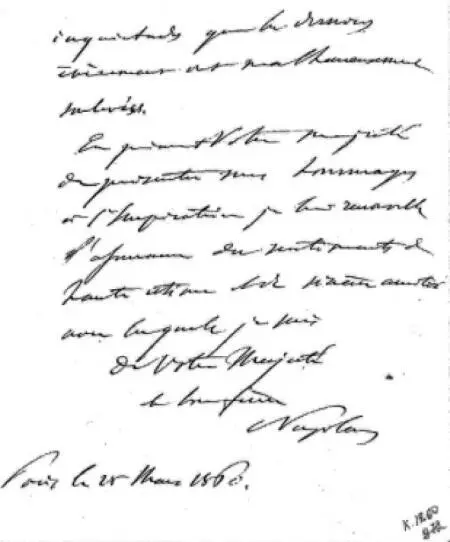 inquietudes que les derniers
événemens ont malheureusement
soulevées.
En priant Votre Majesté
de présenter mes hommages
à l'Impératrice je lui renouvelle
l'assurance des sentiments de
haute estime et de sincère amitié
avec lesquels je suis
de Votre Majesté
le bon frère
Napoléon
Paris le 25 Mars 1860.
K. 1860